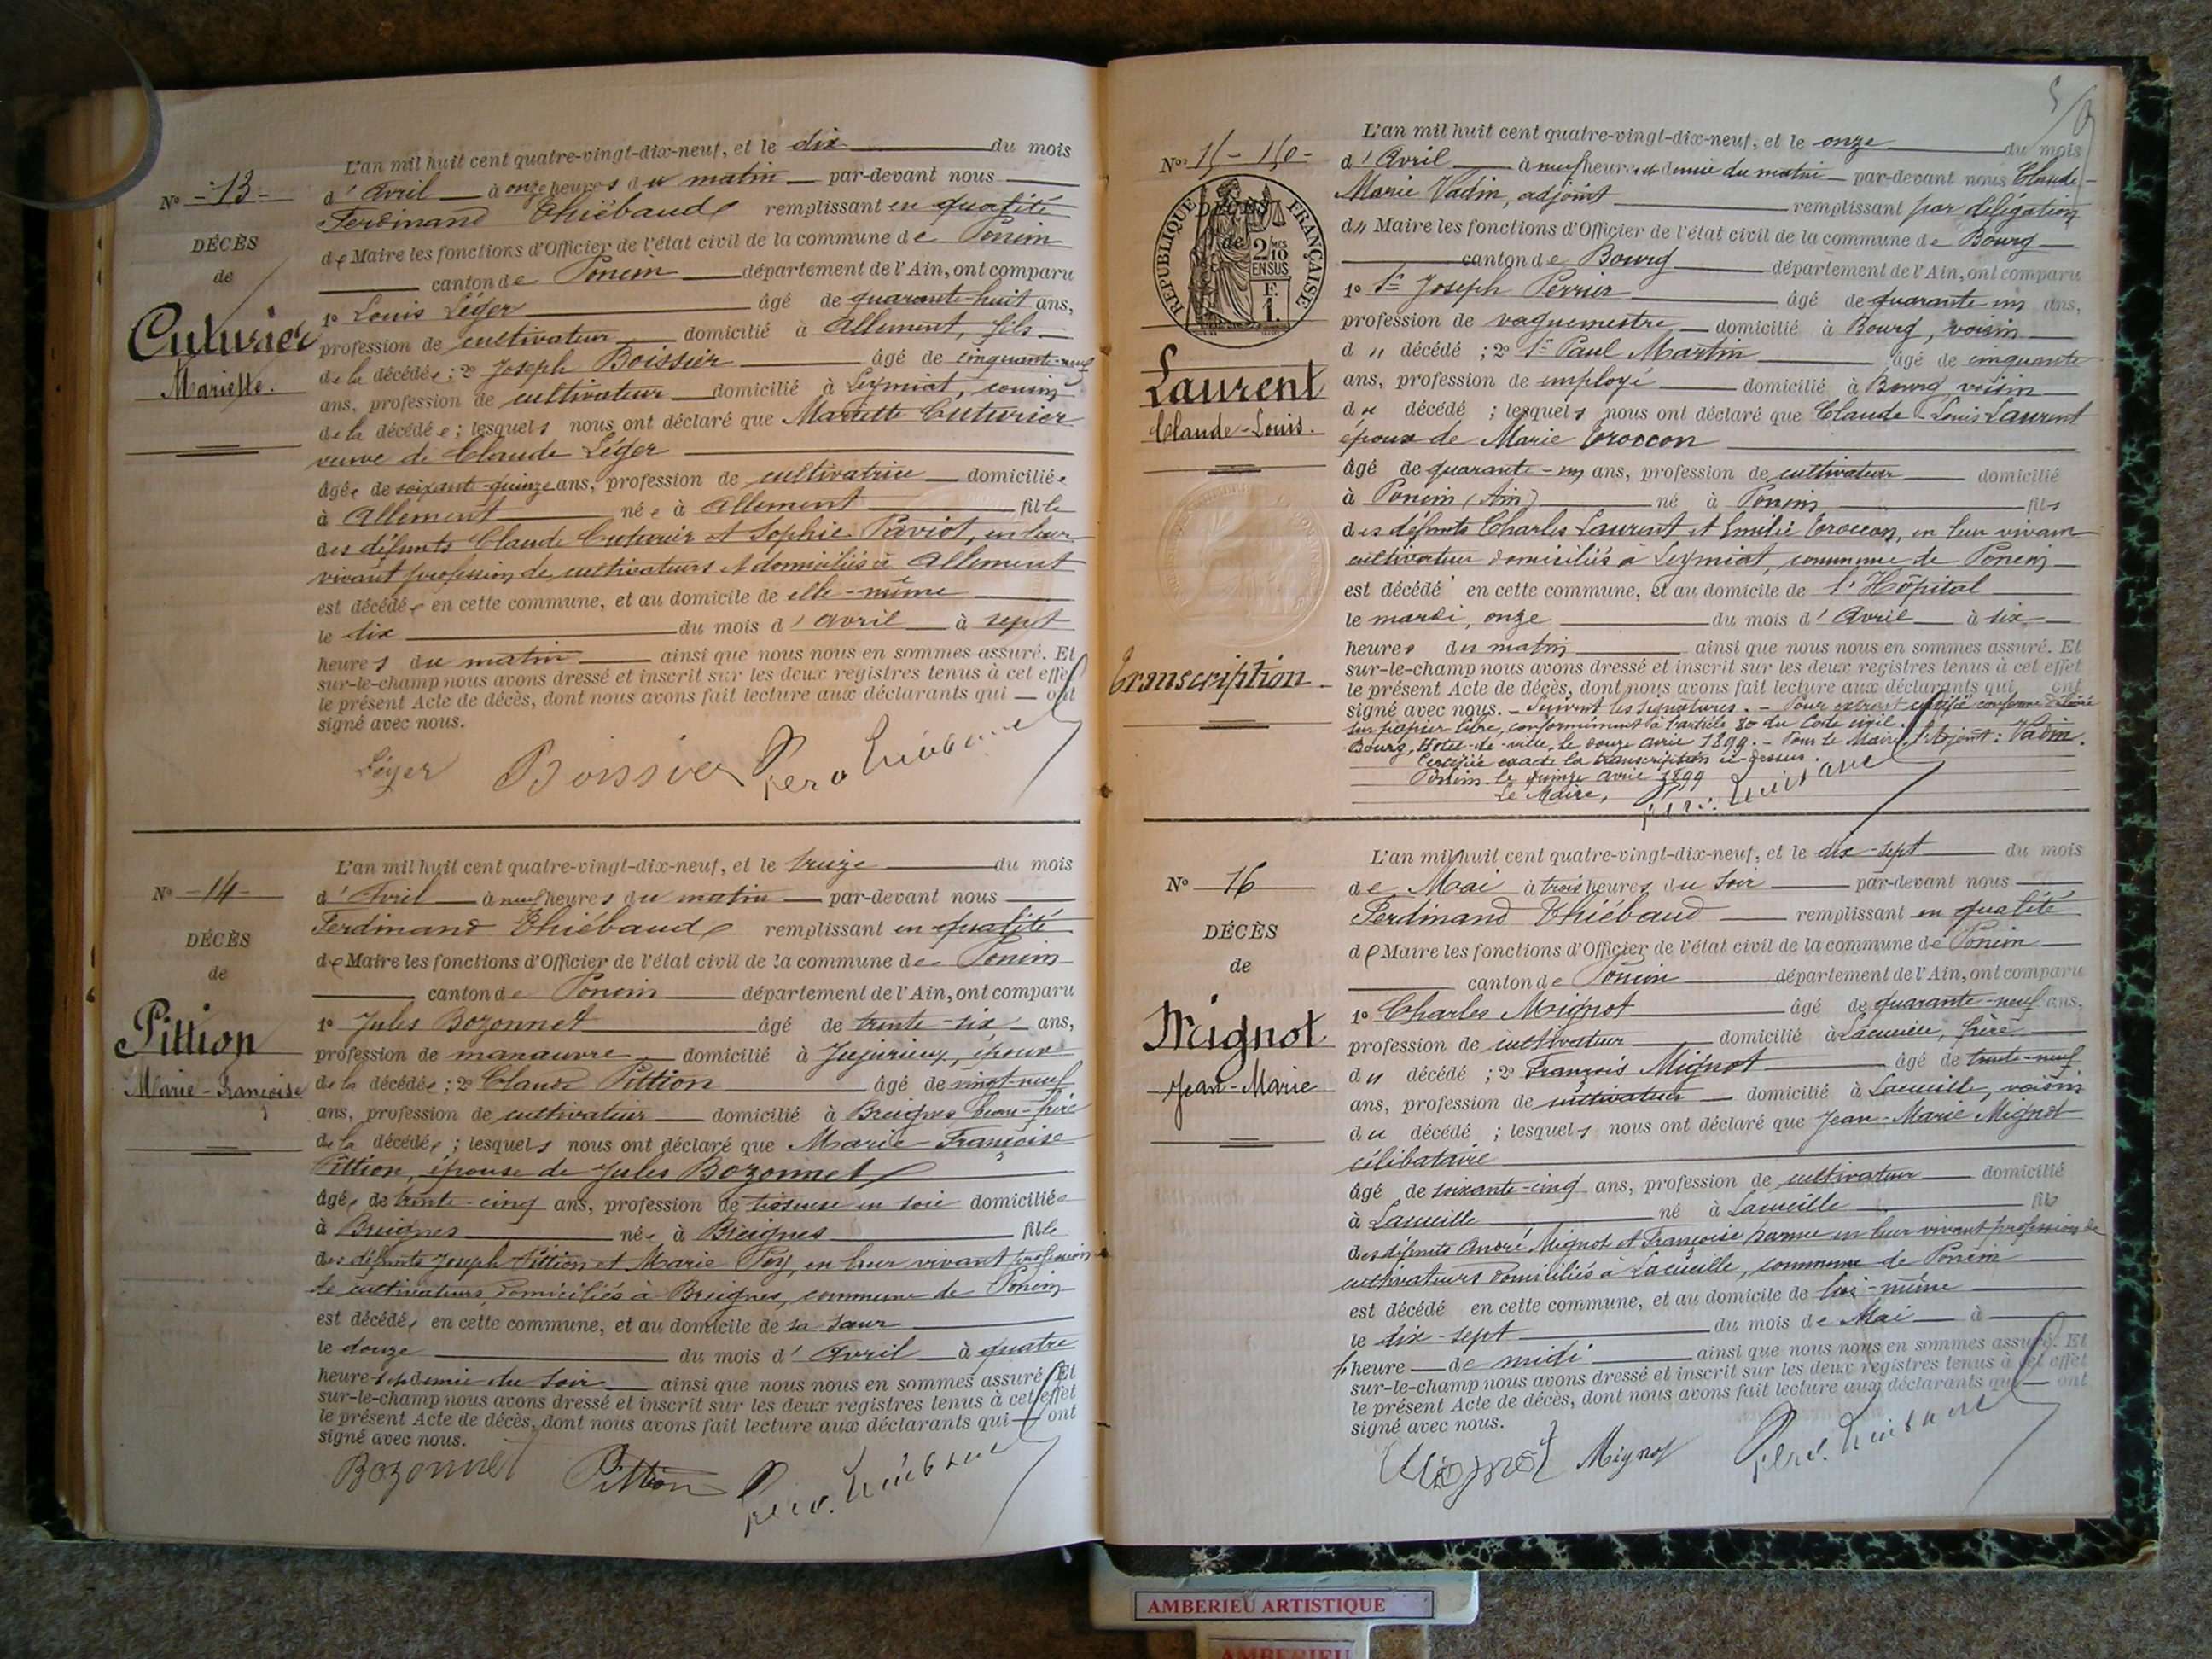 L'an mil huit cent quatre-vingt-dix-neuf, et le dix du mois
N° -13-
d'Avril à onze heures du matin par-devant nous
Ferdinand Thiébaud remplissant en qualité
DÉCÈS
de Maire les fonctions d'Officier de l'état civil de la commune de Poncin
de
canton de Poncin département de l'Ain, ont comparu
1° Louis Léger âgé de quarante-huit ans,
Cuturier
profession de cultivateur domicilié à Allement, fils
Mariette.
de la décédée ; 2° Joseph Boissier âgé de cinquante-neuf
ans, profession de cultivateur domicilié à Leymiat, cousin
de la décédée ; lesquels nous ont déclaré que Mariette Cuturier
veuve de Claude Léger
âgée de soixante-quinze ans, profession de cultivatrice domiciliée
à Allement née à Allement fille
des défunts Claude Cuturier et Sophie Paviot, en leur
vivant profession de cultivateurs et domiciliés à Allement
est décédée en cette commune, et au domicile de elle-même
le dix du mois d'avril à sept
heures du matin ainsi que nous nous en sommes assuré. Et
sur-le-champ nous avons dressé et inscrit sur les deux registres tenus à cet effet
le présent Acte de décès, dont nous avons fait lecture aux déclarants qui ont
signé avec nous.
Léger Boissier
L'an mil huit cent quatre-vingt-dix-neuf, et le treize du mois
N° -14-
d'Avril à neuf heures du matin par-devant nous
Ferdinand Thiébaud remplissant en qualité
DÉCÈS
de Maire les fonctions d'Officier de l'état civil de la commune de Poncin
de
canton de Poncin département de l'Ain, ont comparu
1° Jules Bozonnet âgé de trente-six ans,
Pittion
profession de manœuvre domicilié à Jujurieux, époux
Marie-Françoise
de la décédée ; 2° Claude Pittion âgé de vingt-neuf
ans, profession de cultivateur domicilié à Breignes beau-frère
de la décédée ; lesquels nous ont déclaré que Marie-Françoise
Pittion, épouse de Jules Bozonnet
âgée de trente-cinq ans, profession de tisseuse en soie domiciliée
à Breignes née à Breignes fille
des défunts Joseph Pittion et Marie Pey, en leur vivant profession
de cultivateurs domiciliés à Breignes, commune de Poncin
est décédée en cette commune, et au domicile de sa sœur
le douze du mois d'Avril à quatre
heures et demie du soir ainsi que nous nous en sommes assuré. Et
sur-le-champ nous avons dressé et inscrit sur les deux registres tenus à cet effet
le présent Acte de décès, dont nous avons fait lecture aux déclarants qui ont
signé avec nous.
Bozonnet Pittion
L'an mil huit cent quatre-vingt-dix-neuf, et le onze du mois
N°
d'Avril à neuf heures et demie du matin par-devant nous Claude-
Marie Vadin, adjoint remplissant par délégation
RÉPUBLIQUE FRANÇAISE
DÉCÈS
de
2/10 EN SUS
F. 1.
du Maire les fonctions d'Officier de l'état civil de la commune de Bourg
canton de Bourg département de l'Ain, ont comparu
1° Sr Joseph Perrier âgé de quarante un ans,
profession de vaguemestre domicilié à Bourg, voisin
Laurent
du décédé ; 2° Sr Paul Martin âgé de cinquante
Claude-Louis.
ans, profession de employé domicilié à Bourg, voisin
du décédé ; lesquels nous ont déclaré que Claude-Louis Laurent
époux de Marie Croccon
âgé de quarante-un ans, profession de cultivateur domicilié
à Poncin (Ain) né à Poncin fils
des défunts Charles Laurent et Emilie Croccon, en leur vivant
cultivateur domiciliés à Leymiat, commune de Poncin
est décédé en cette commune, et au domicile de l'Hôpital
le mardi, onze du mois d'Avril à six
heures du matin ainsi que nous nous en sommes assuré. Et
Transcription
sur-le-champ nous avons dressé et inscrit sur les deux registres tenus à cet effet
le présent Acte de décès, dont nous avons fait lecture aux déclarants qui ont
signé avec nous. - Suivent les signatures. - Pour extrait certifié conforme délivré
sur papier libre, conformément à l'article 80 du Code civil.
Bourg, Hôtel-de-ville, le douze avril 1899. - Pour le Maire, l'Adjoint : Vadin.
Certifié exacte la transcription ci-dessus.
Poncin le quinze avril 1899
Le Maire,
L'an mil huit cent quatre-vingt-dix-neuf, et le dix-sept du mois
N° 16
de Mai à trois heures du soir par-devant nous
Ferdinand Thiébaud remplissant en qualité
DÉCÈS
de Maire les fonctions d'Officier de l'état civil de la commune de Poncin
de
canton de Poncin département de l'Ain, ont comparu
1° Charles Mignot âgé de quarante-neuf ans,
Mignot
profession de cultivateur domicilié à Lacueille, frère
Jean-Marie
du décédé ; 2° François Mignot âgé de trente-neuf
ans, profession de cultivateur domicilié à Lacueille, voisin
du décédé ; lesquels nous ont déclaré que Jean-Marie Mignot
célibataire
âgé de soixante-cinq ans, profession de cultivateur domicilié
à Lacueille né à Lacueille fils
des défunts André Mignot et Françoise en leur vivant profession de
cultivateurs domiciliés à Lacueille, commune de Poncin
est décédé en cette commune, et au domicile de lui-même
le dix-sept du mois de Mai à
heure de midi ainsi que nous nous en sommes assuré. Et
sur-le-champ nous avons dressé et inscrit sur les deux registres tenus à cet effet
le présent Acte de décès, dont nous avons fait lecture aux déclarants qui ont
signé avec nous.
Mignot Mignot
AMBERIEU ARTISTIQUE
AMBERIEU